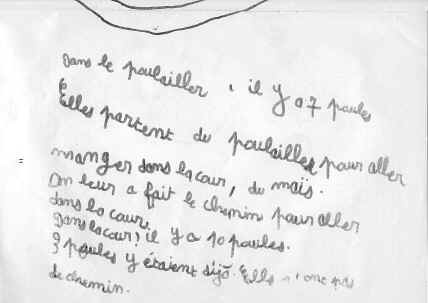 Dans le poulailler, il y a 7 poules
Elles partent du poulailler pour aller
manger dans la cour, du maïs.
On leur a fait le chemin pour aller
dans la cour.
Dans la cour, il y a 10 poules.
3 poules y étaient déjà. Elles n'ont pas
de chemin.